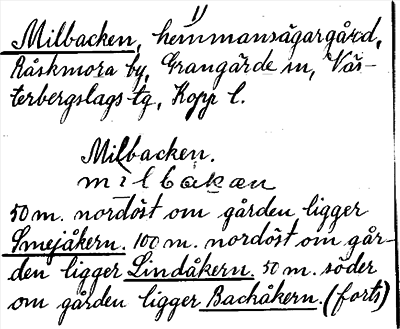 Milbacken, hemmansägargård,
Råskmora by, Grangärde sn, Väs-
terbergslags tg, Kopp l.
Milbacken.
milbakæn
50 m. nordöst om gården ligger
Smejåkern. 100 m. nordöst om går-
den ligger Lindåkern. 50 m. söder
om gården ligger Backåkern. (forts)